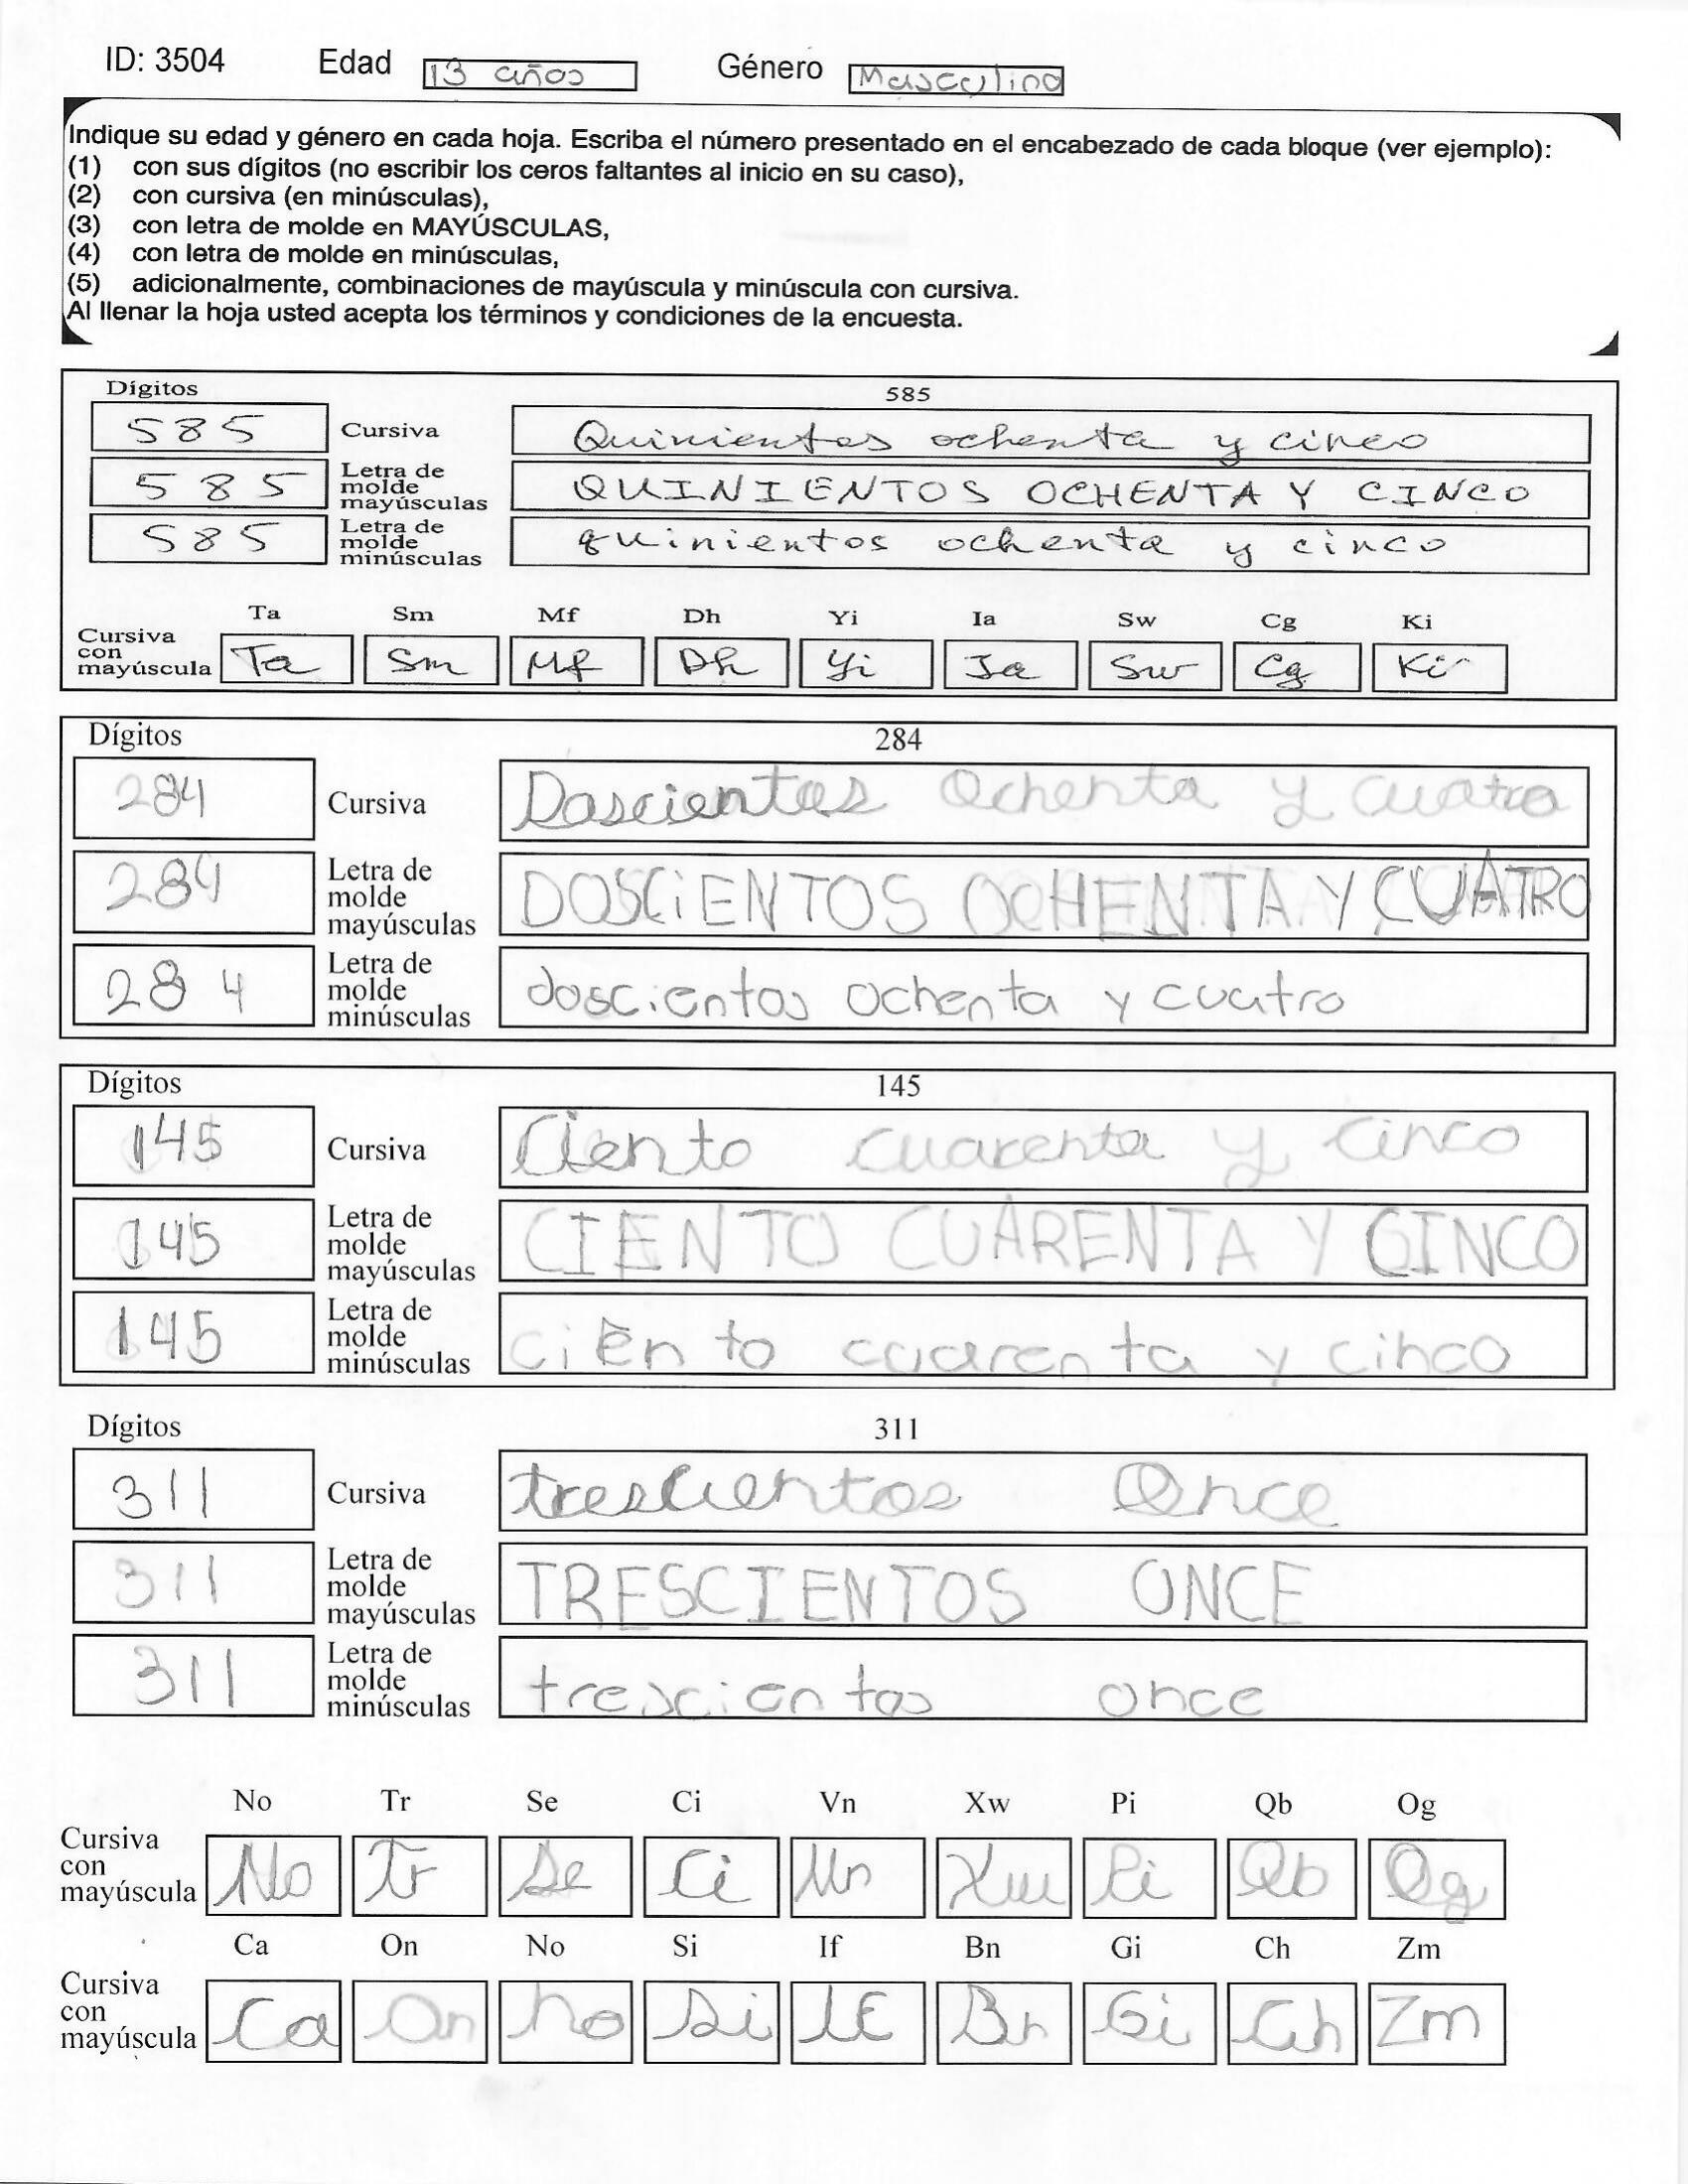 ID: 3504 Edad 13 años Género Masculino
Indique su edad y género en cada hoja. Escriba el número presentado en el encabezado de cada bloque (ver ejemplo):
(1) con sus dígitos (no escribir los ceros faltantes al inicio en su caso),
(2) con cursiva (en minúsculas),
(3) con letra de molde en MAYÚSCULAS,
(4) con letra de molde en minúsculas,
(5) adicionalmente, combinaciones de mayúscula y minúscula con cursiva.
Al llenar la hoja usted acepta los términos y condiciones de la encuesta.
Dígitos 585
585 Cursiva Quinientos ochenta y cinco
585 Letra de molde mayúsculas QUINIENTOS OCHENTA Y CINCO
585 Letra de molde minúsculas quinientos ochenta y cinco
Ta Sm Mf Dh Yi Ia Sw Cg Ki
Cursiva con mayúscula Ta Sm Mf Dh Yi Ia Sw Cg Ki
Dígitos 284
284 Cursiva Doscientos Ochenta y cuatro
284 Letra de molde mayúsculas DOSCiENTOS OCHENTA Y CUATRO
284 Letra de molde minúsculas doscientos ochenta y cuatro
Dígitos 145
145 Cursiva Ciento cuarenta y cinco
145 Letra de molde mayúsculas CIENTO CUARENTA Y CINCO
145 Letra de molde minúsculas ciento cuarenta y cinco
Dígitos 311
311 Cursiva trescientos Once
311 Letra de molde mayúsculas TRESCIENTOS ONCE
311 Letra de molde minúsculas trescientos once
No Tr Se Ci Vn Xw Pi Qb Og
Cursiva con mayúscula No Tr Se Ci Vn Xw Pi Qb Og
Ca On No Si If Bn Gi Ch Zm
Cursiva con mayúscula Ca On No Si If Bn Gi Ch Zm